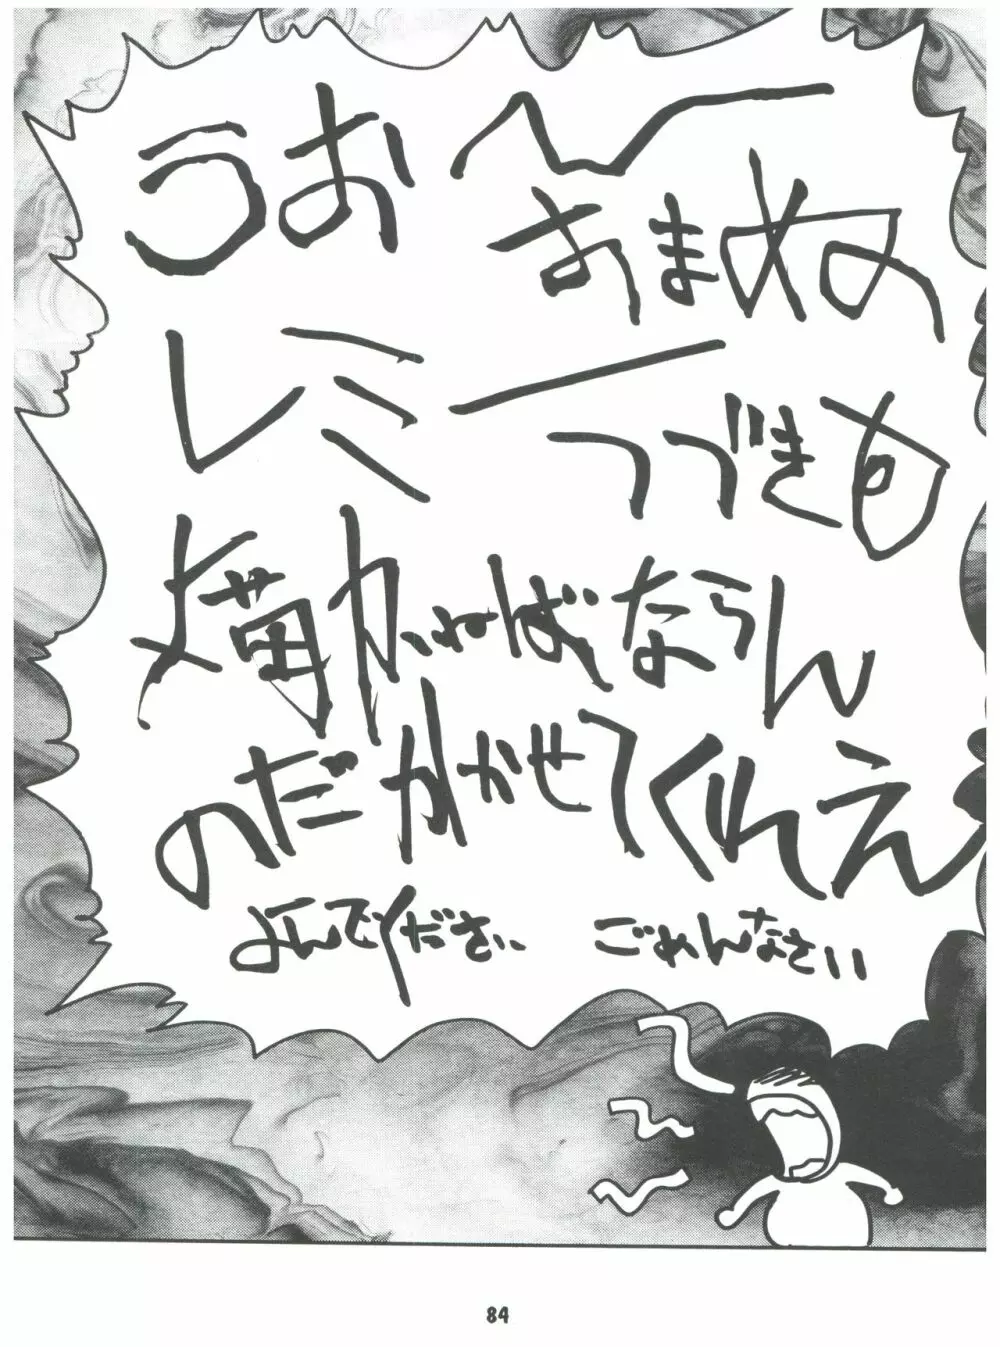 うお〜
あまぬの
レミー
つづきを
描かねばならん
のだ かかせてくれえ
よんでください ごめんなさい
84